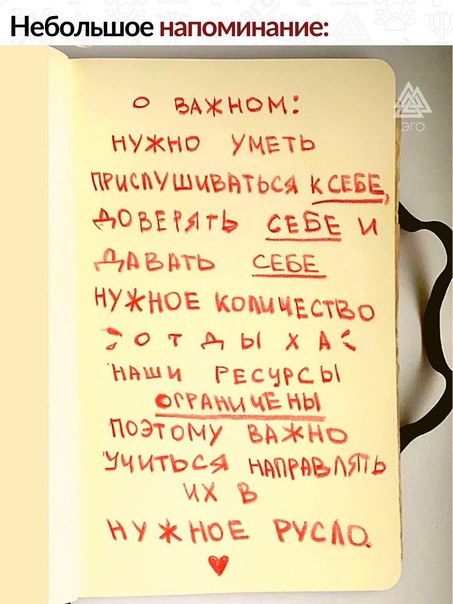 Небольшое напоминание:
О ВАЖНОМ:
НУЖНО УМЕТЬ
ПРИСЛУШИВАТЬСЯ К СЕБЕ,
ДОВЕРЯТЬ СЕБЕ И
ДАВАТЬ СЕБЕ
НУЖНОЕ КОЛИЧЕСТВО
ОТДЫХА
НАШИ РЕСУРСЫ
ОГРАНИЧЕНЫ
ПОЭТОМУ ВАЖНО
УЧИТЬСЯ НАПРАВЛЯТЬ
ИХ В
НУЖНОЕ РУСЛО.
эго